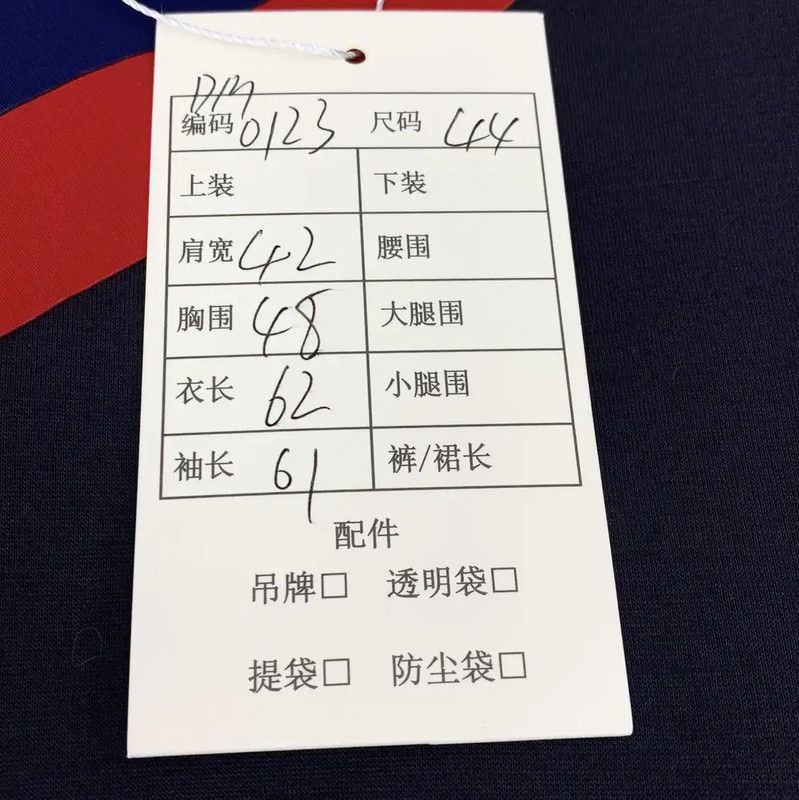 DM
编码 0123 尺码 44
上装 下装
肩宽 42 腰围
胸围 48 大腿围
衣长 62 小腿围
袖长 61 裤/裙长
配件
吊牌□ 透明袋□
提袋□ 防尘袋□